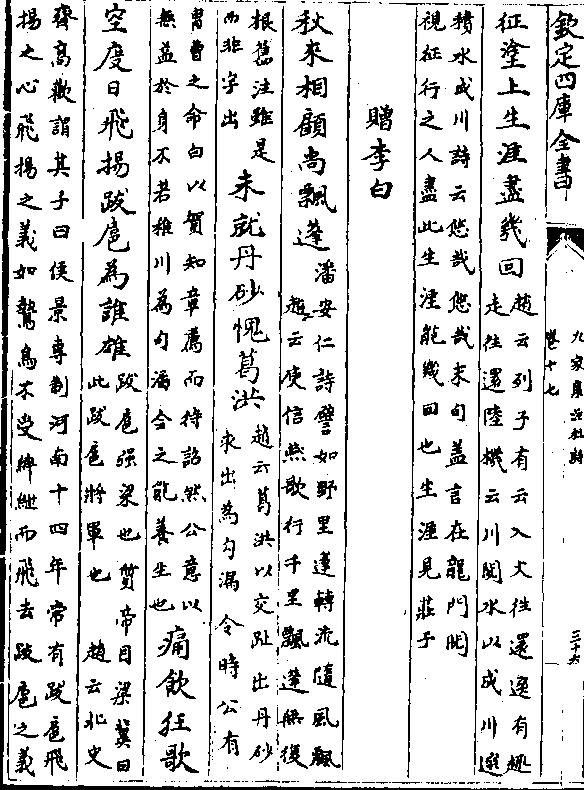 欽定四庫全書
九家集注杜詩
卷十七
三十六
征塗上生涯盡幾回
趙云列子有云入火往還邊有趣
走往還陸機云川閱水以成川選
積水成川詩云悠哉悠哉末句盖言在龍門閱
視征行之人盡此生涯能幾回也生涯見莊子
贈李白
秋來相顧尚飄蓬
潘安仁詩譬如野里蓬轉流隨風飄
趙云使信燕歌行千里飄蓬無復
根舊注雖是
而非字出
未就丹砂愧葛洪
趙云葛洪以交趾出丹砂
求出為勾漏令時公有
胄曹之命白以賀知章薦而待詔然公意以
無益於身不若稚川為勾漏令之能養生也
痛飲狂歌
空度日飛揚跋扈為誰雄
跋扈强梁也質帝目梁冀曰
此跋扈將軍也 趙云北史
齊高歡謂其子曰侯景專制河南十四年常有跋扈飛
揚之心飛揚之義如鷙鳥不受紲而飛去跋扈之義